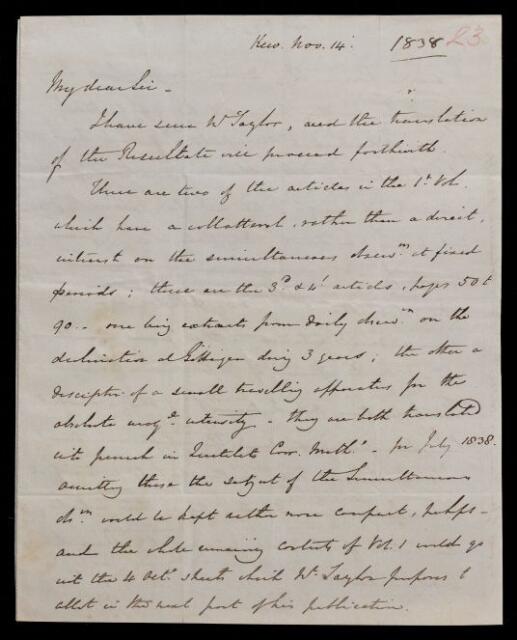 Kew. Nov. 14. 1838 23
My dear Sir -
I have seen Mr Taylor, and the translation
of the Resultate will proceed forthwith.
There are two of the articles in the 1st Vol.
which have a collateral, rather than a direct,
interest on the simultaneous observns at fixed
periods; these are the 3d & 4t articles, pages 50 t
90 .. one being extracts from daily observns on the
declination at Göttingen during 3 years; the other a
descriptn of a small travelling apparatus for the
absolute magc intensity - they are both translated
into french in Quetelets Corr. Math. - for July 1838.
omitting these the subject of the Simultaneous
obsns would be kept rather more compact, perhaps -
and the whole remaining contents of Vol. 1 would go
into the 4 Octo sheets which Mr Taylor proposes to
allot in the next part of his publication.